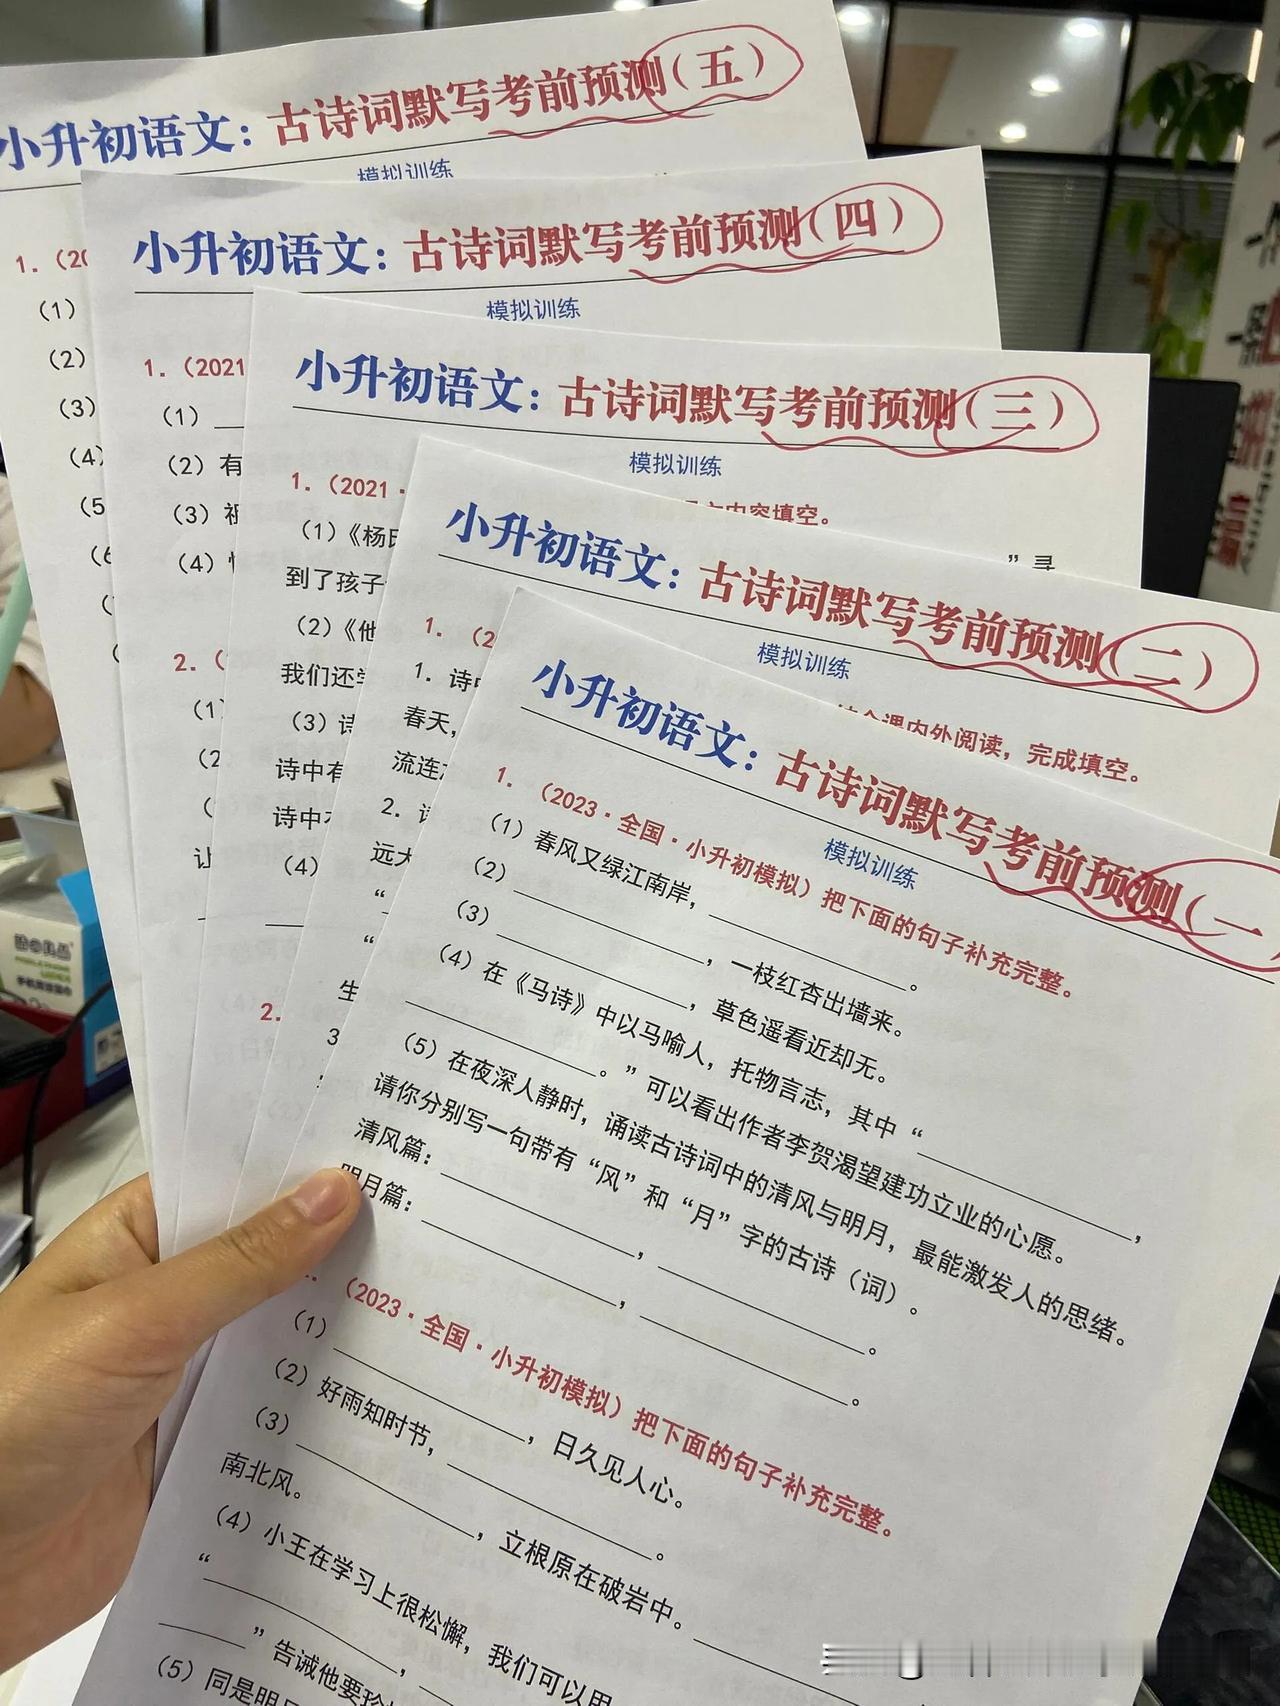 小升初语文：古诗词默写考前预测（五）
模拟训练
1.（20
（1）
（2）
（3）
（4）
（5
（6
小升初语文：古诗词默写考前预测（四）
模拟训练
1.（2021
（1）
（2）有
（3）祝
（4）
2.（
（1）
（2
让
小升初语文：古诗词默写考前预测（三）
模拟训练
1.（2021·
内容填空。
（1）《杨氏
”寻
到了孩子
（2）《他
我们还学
（3）诗
诗中有
诗中
（4）
2.
小升初语文：古诗词默写考前预测（二）
模拟训练
1.（2
结合课内外阅读，完成填空。
1.诗
春天，
流连
2.诗
远大
“
“
生
3
小升初语文：古诗词默写考前预测（一
模拟训练
1.（2023·全国·小升初模拟）把下面的句子补充完整。
（1）春风又绿江南岸，。
（2），一枝红杏出墙来。
（3），草色遥看近却无。
（4）在《马诗》中以马喻人，托物言志，其中“，
。”可以看出作者李贺渴望建功立业的心愿。
（5）在夜深人静时，诵读古诗词中的清风与明月，最能激发人的思绪。
请你分别写一句带有“风”和“月”字的古诗（词）。
清风篇：，。
明月篇：，。
（2023·全国·小升初模拟）把下面的句子补充完整。
（1），日久见人心。
（2）好雨知时节，。
（3），立根原在破岩中。
南北风。
（4）小王在学习上很松懈，我们可以用
“，
”告诫他要珍
（5）同是明月